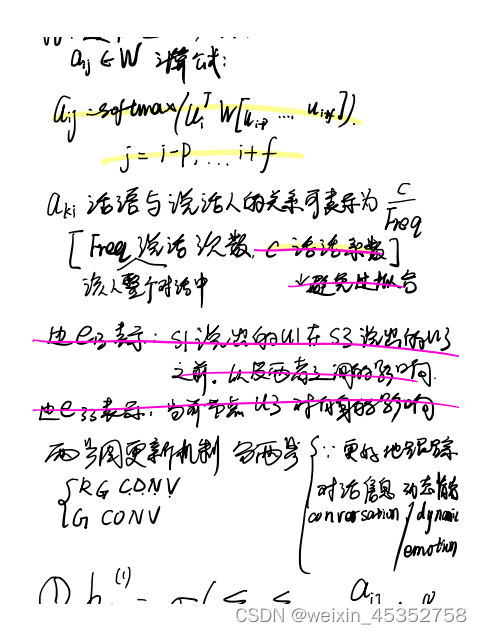 aij ∈ W 计算公式:
aij = softmax(ui^T W[ui-p, ..., ui+f]).
j = i-p, ... i+f
aki 话语与说话人的关系可表示为 C/Freq
[Freq 说话次数, C 话语系数]
该人整个对话中 避免过拟合
边e13表示: S1说出的u1在S3说出的u3
之前, 以及两者之间的影响.
边e33表示: 当前节点u3对自身的影响
两步图更新机制 分两步
∵更好地跟踪
{RG CONV
对话信息 动态情
G CONV
conversation / dynamic
emotion
① h (1) = σ(
aij
CSDN @weixin_45352758